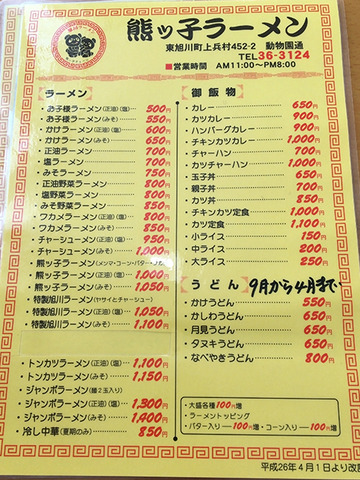 熊ッ子ラーメン
東旭川町上兵村452-2 動物園通
TEL36-3124
■営業時間 AM11:00~PM8:00
ラーメン
・お子様ラーメン(正油)(塩) 500円
・お子様ラーメン(みそ) 550円
・かけラーメン(正油)(塩) 600円
・かけラーメン(みそ) 650円
・正油ラーメン 700円
・塩ラーメン 700円
・みそラーメン 750円
・正油野菜ラーメン 800円
・塩野菜ラーメン 800円
・みそ野菜ラーメン 850円
・ワカメラーメン(正油)(塩) 800円
・ワカメラーメン(みそ) 850円
・チャーシューメン(正油)(塩) 950円
・チャーシューメン(みそ) 1,000円
・熊ッ子ラーメン(メンマ・コーン・バター・
・熊ッ子ラーメン(正油)(塩) 1,000円
・熊ッ子ラーメン(みそ) 1,050円
・特製旭川ラーメン(ヤサイとチャーシュー)
・特製旭川ラーメン(正油)(塩) 1,050円
・特製旭川ラーメン(みそ) 1,100円
・トンカツラーメン(正油)(塩) 1,100円
・トンカツラーメン(みそ) 1,150円
・ジャンボラーメン(麺2玉入り)
・ジャンボラーメン(正油)(塩) 1,300円
・ジャンボラーメン(みそ) 1,400円
・冷し中華(夏期のみ) 850円
御飯物
・カレー 650円
・カツカレー 900円
・ハンバーグカレー 900円
・チキンカツカレー 1,000円
・チャーハン 700円
・カツチャーハン 1,000円
・玉子丼 650円
・親子丼 700円
・カツ丼 850円
・チキンカツ定食 1,000円
・カツ定食 1,100円
・小ライス 150円
・中ライス 200円
・大ライス 250円
うどん 9月から4月まで
・かけうどん 550円
・かしわうどん 650円
・月見うどん 650円
・タヌキうどん 650円
・なべやきうどん 800円
・大盛各種100円増
・ラーメントッピング
・バター入り―100円増・コーン入り―100円増
平成26年4月1日より改